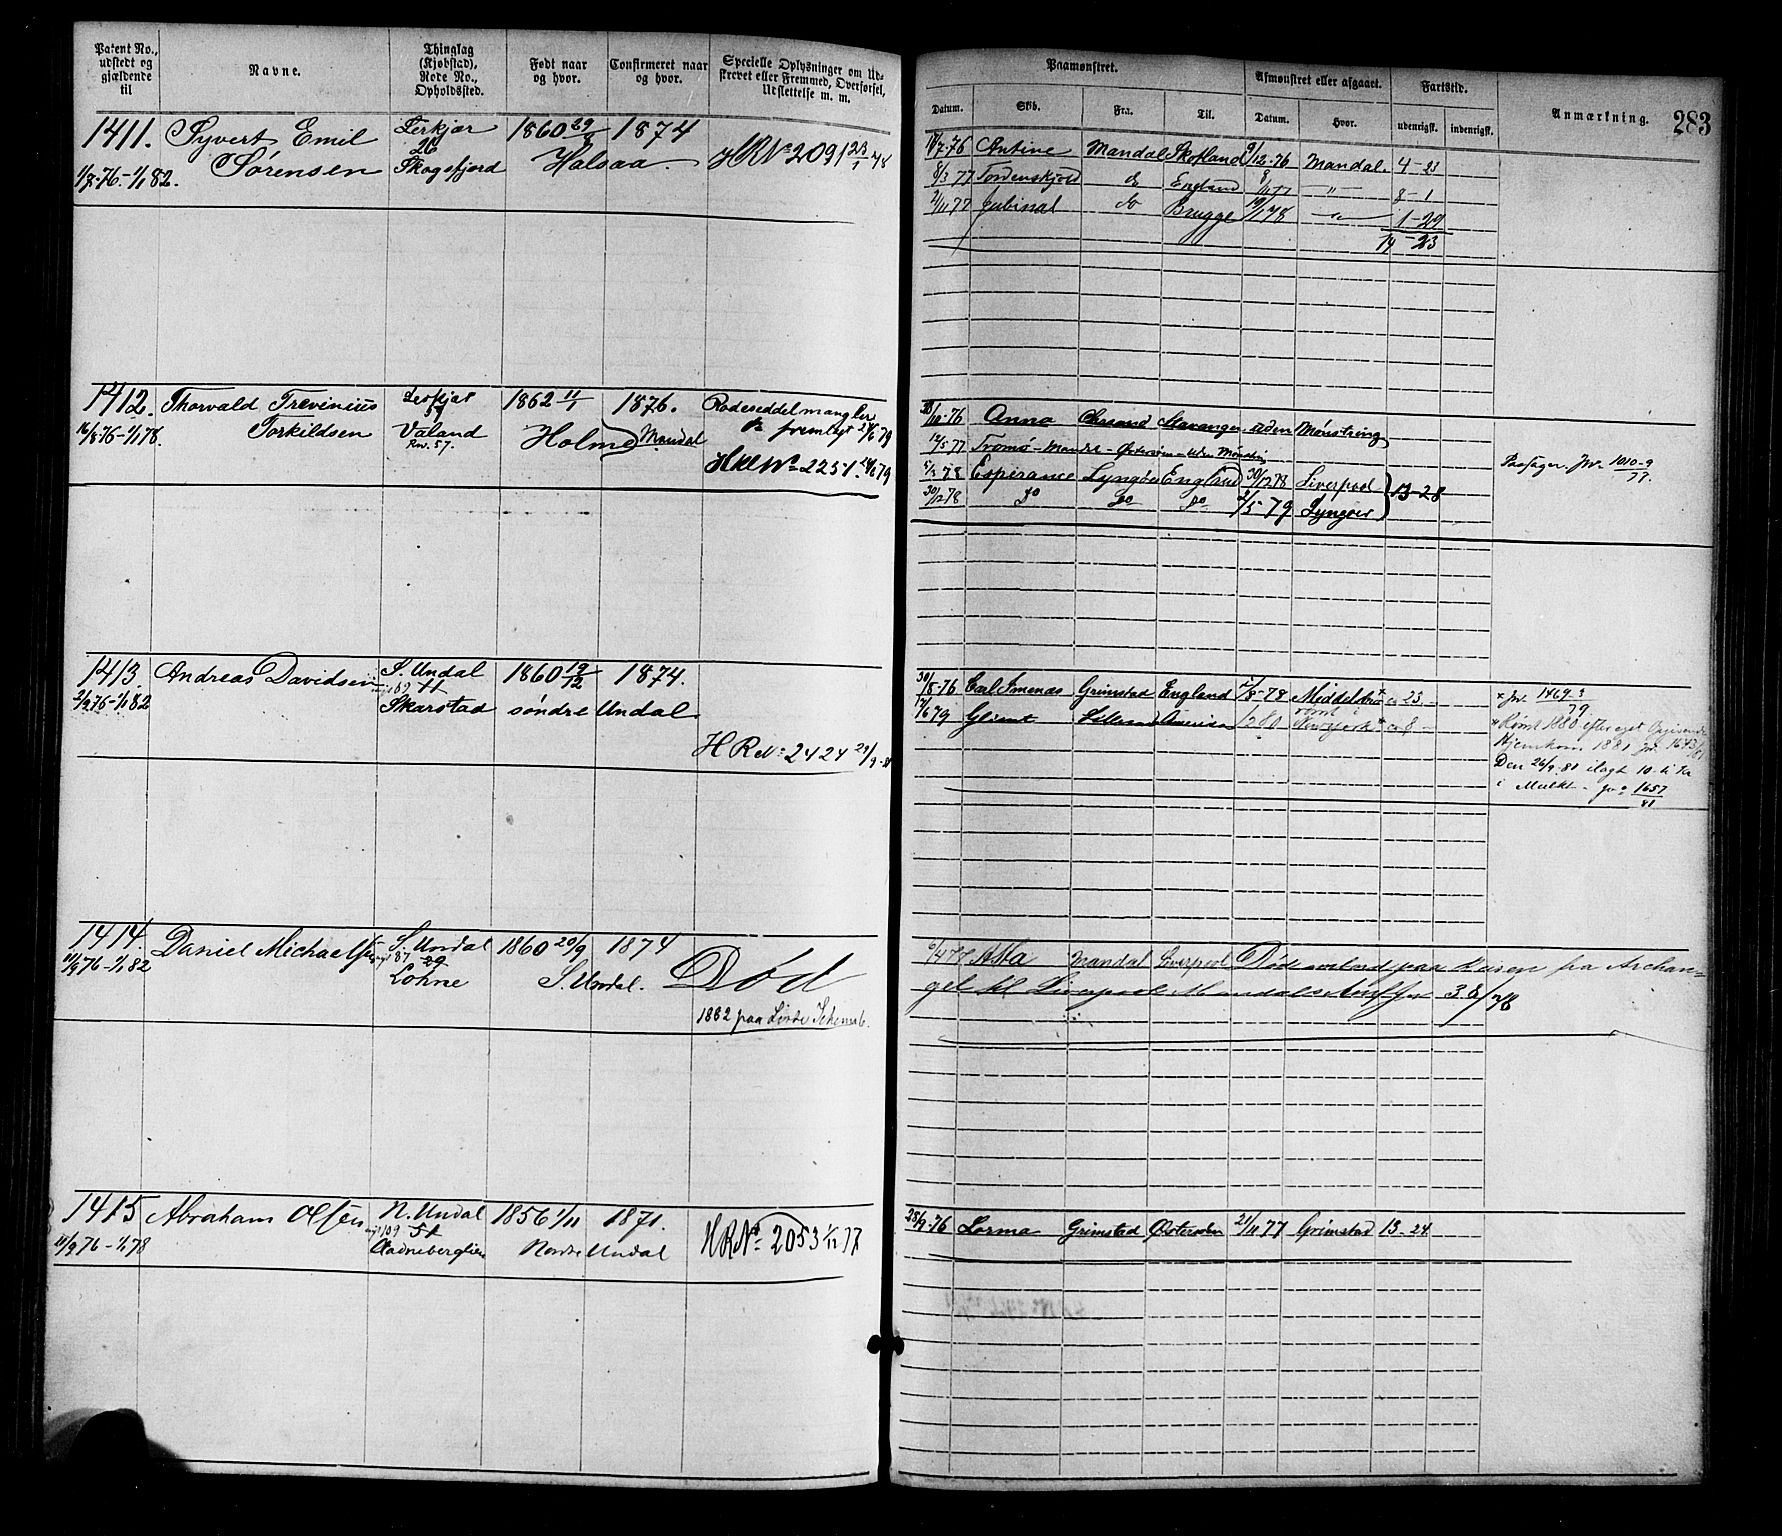 Patent No., udstedt og gjældende til
Navne.
Thinglag (Kjøbstad), Rode No., Opholdssted.
Født naar og hvor.
Confirmeret naar og hvor.
Specielle Oplysninger om Udskrevet eller Fremmed, Overførsel, Udslettelse m. m.
1411. Syvert Emil 1860 29/ 1874
Sørensen 26
Skogsfjord Halsaa. HRNo 2091 23/1 78
1/7-76-1/1 82.
1412. Thorvald Trevinius 1862 11/1 1876. Rodeseddel mangler
16/8 76-1/1 78. Torkildsen Valand Holme Mandal fremlagt 24/6 79
Rno. 57. No 2251. 24/6 79
1413. Andreas Davidsen S. Undal 1860 19/12 1874.
2/9 76-1/1 82 69 11 Skarstad søndre Undal.
HRNo 2424 29/9-81
1414. Daniel Michaelsen S. Undal 1860 20/9 1874
11/9 76-1/1 82 87 29 Lohne S. Undal. Død
1882 paa
1415 Abraham Olsen N. Undal 1856 1/11 1871.
11/9 76-1/1 78 109 51 Nordre Undal HRNo 2053 1/12 77
Paamønstret.
Afmønstret eller afgaaet.
Fartstid.
Anmærkning. 283
Datum. Skib. Fra. Til. Datum. Hvor. udenrigsk. indenrigsk.
17/7-76 Antine Mandal Skotland 9/12-76 Mandal. 4-23
8/3 77 Tordenskjold do England 8/11 77 -"- 8-1
2/11 77 Jubinal do Brügge 19/1 78 -"- 1-29
14-23
/10-76 Anna Chrsand Stavanger uden Mønstring
12/5-77 Tromø - Mandal - Østersøen - uden Mønstring
Passager. Jno 1010-9/77.
5/3-78 Esperance Lyngør England 30/12 78 Liverpool
30/12 78 do do do 2/5-79 Lyngør 13-28
30/8-76 Carl Grimstad England 2/8-78 Middelsbro* ca 23-
* Jno 1469-3/79
12/6 79 Glimt Lillesand America / 1880 rømt i Newyork* ca 8-
* Rømt 1880 efter eget Opgivende
Hjemkom. 1881 Jno 1643/81
Den 26/9-81 ilagt 10-ti Kr
i Mulkt. Jno 1657/81
6/4 77 Atla Mandal Liverpool Død ombord paa Reisen fra Archan-
gel til Liverpool Mandals 38/78
28/9-76 Lorma Grimstad Østersøen 21/11 77 Grimstad 13-24